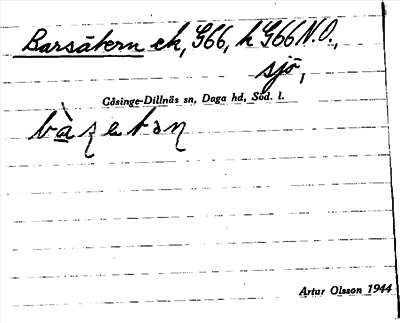 Barsätern ek, G66, h G66 N.O.,
sjö,
Gåsinge-Dillnäs sn, Daga hd, Söd. l.
Artur Olsson 1944